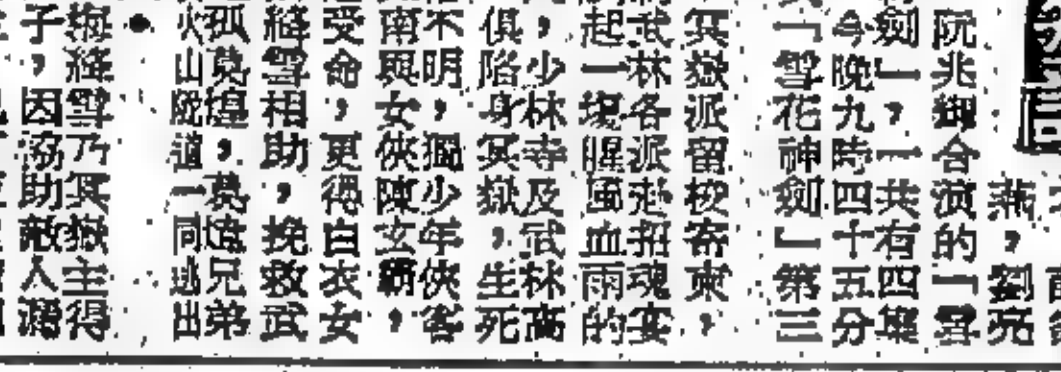 燕，劉亮
阮兆輝合演的「雪
劍」，一共有四集
今晚九時四十五分
「雪花神劍」第三
冥嶽派留梭寄柬，
武林各派赴招魂宴
起一場腥風血雨的
，少林寺及武林高
俱陷身冥嶽，生死
不明，獨少年俠客
南與女俠陳玄霜，
受命，更得白衣女
絳雪相助，挽救武
孤莫煌，莫煌兄弟
火山院道一同逃出
●
梅絳雪乃冥嶽主得
子，因協助敵人